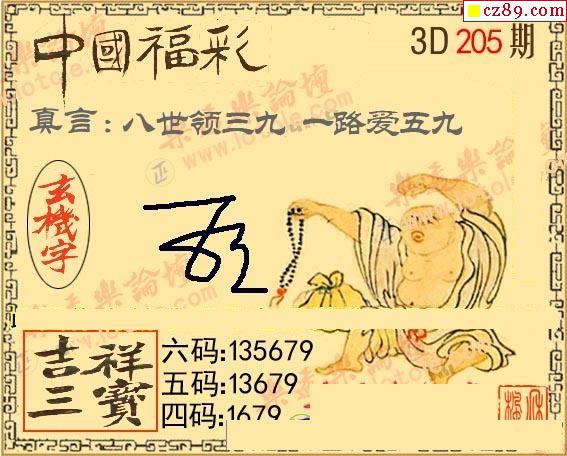 cz89.com
中國福彩
3D 205 期
真言:八世领三九 一路爱五九
玄機字
吉祥三寶
六码:135679
五码:13679
四码:1679